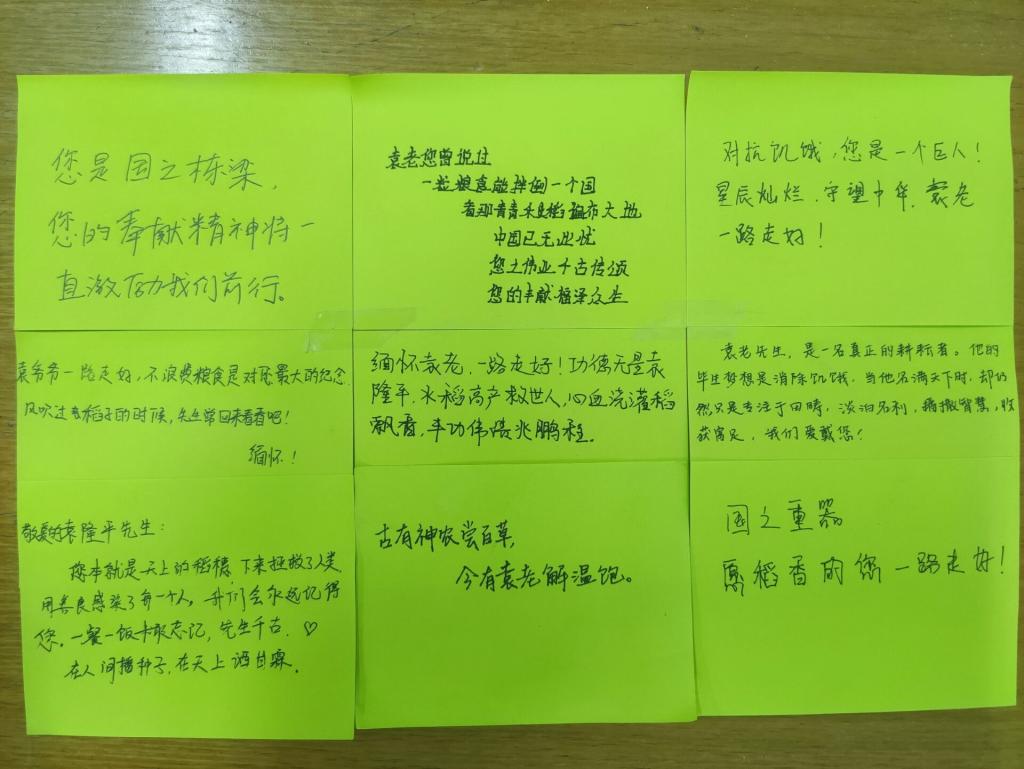 您是国之栋梁，
您的奉献精神将一
直激励我们前行。
袁老您曾说过
一粒粮食能绊倒一个国
看那青青水稻遍布大地
中国已无此忧
您土伟业千古传颂
您的奉献福泽众生
对抗饥饿，您是一个巨人！
星辰灿烂，守望中华，袁老
一路走好！
袁爷爷一路走好，不浪费粮食是对您最大的纪念
风吹过去稻子的时候，先生常回来看看吧！
缅怀！
缅怀袁老，一路走好！功德无量袁
隆平，水稻高产救世人，心血浇灌稻
飘香，丰功伟绩兆鹏程。
袁老先生，是一名真正的耕耘者。他的
毕生梦想是消除饥饿，当他名满天下时，却仍
然只是专注于田畴，淡泊名利，播撒智慧，收
获富足，我们爱戴您！
敬爱的袁隆平先生：
您本就是天上的稻穗，下来拯救了人类
用善良感染了每一个人，我们会永远记得
您。一餐一饭不敢忘记，先生千古。♡
在人间播种子，在天上洒甘霖。
古有神农尝百草，
今有袁老解温饱。
国之重器
愿稻香的您一路走好！